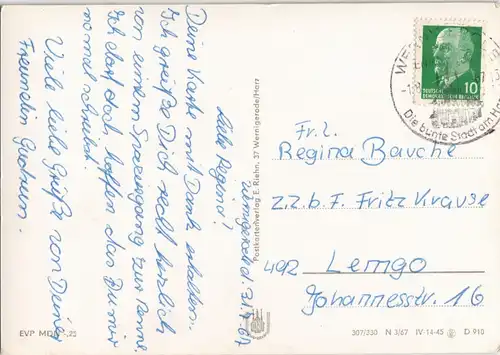 Wernigerode d. 31.7.67
Liebe Regina!
Deine Karte mit Dank erhalten.
Ich grüße Dich recht herzlich
von einem Spaziergang zur
Ich darf doch hoffen das Du mir
normal schreibst.
Viele liebe Grüße von Deiner
Freundin Gudrun.
Postkartenverlag E. Riehn, 37 Wernigerode/Harz
EVP MDN -,25
DEUTSCHE
DEMOKRATISCHE REPUBLIK
10
Die bunte Stadt am H
Frl.
Regina Bauche
z.z.b.F. Fritz Krause
492 Lemgo
Johannesstr. 16
307/330 N 3/67 IV-14-45 D 910